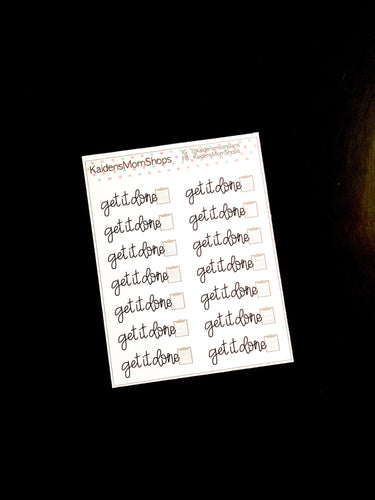 KaidensMomShops
IG @kaidensmomplans
FB KaidensMomShops
get it done get it done
get it done get it done
get it done get it done
get it done get it done
get it done get it done
get it done get it done
get it done get it done